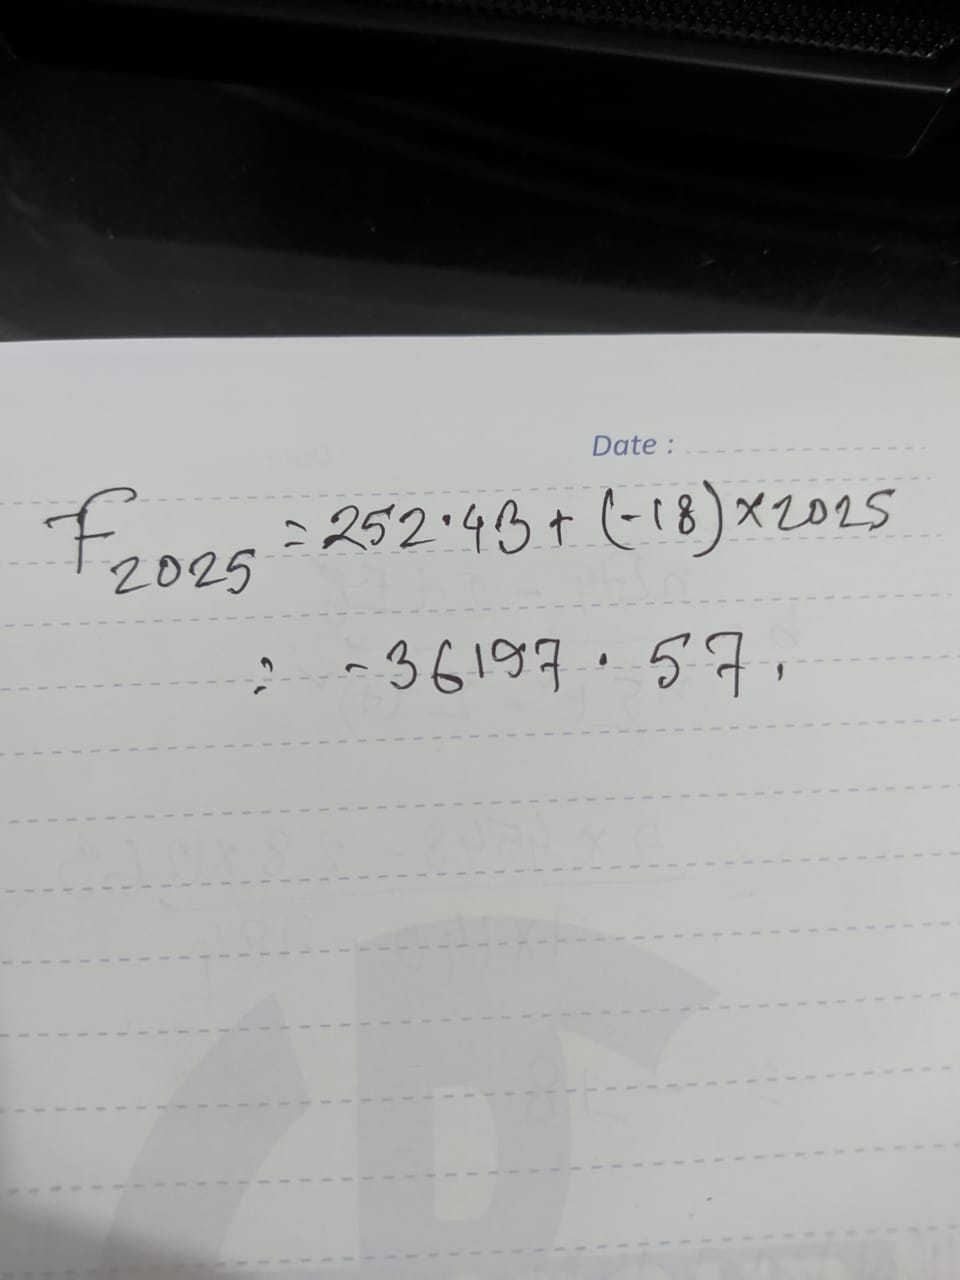 Date :
F2025 = 252.43 + (-18) × 2025
= -36197.57.